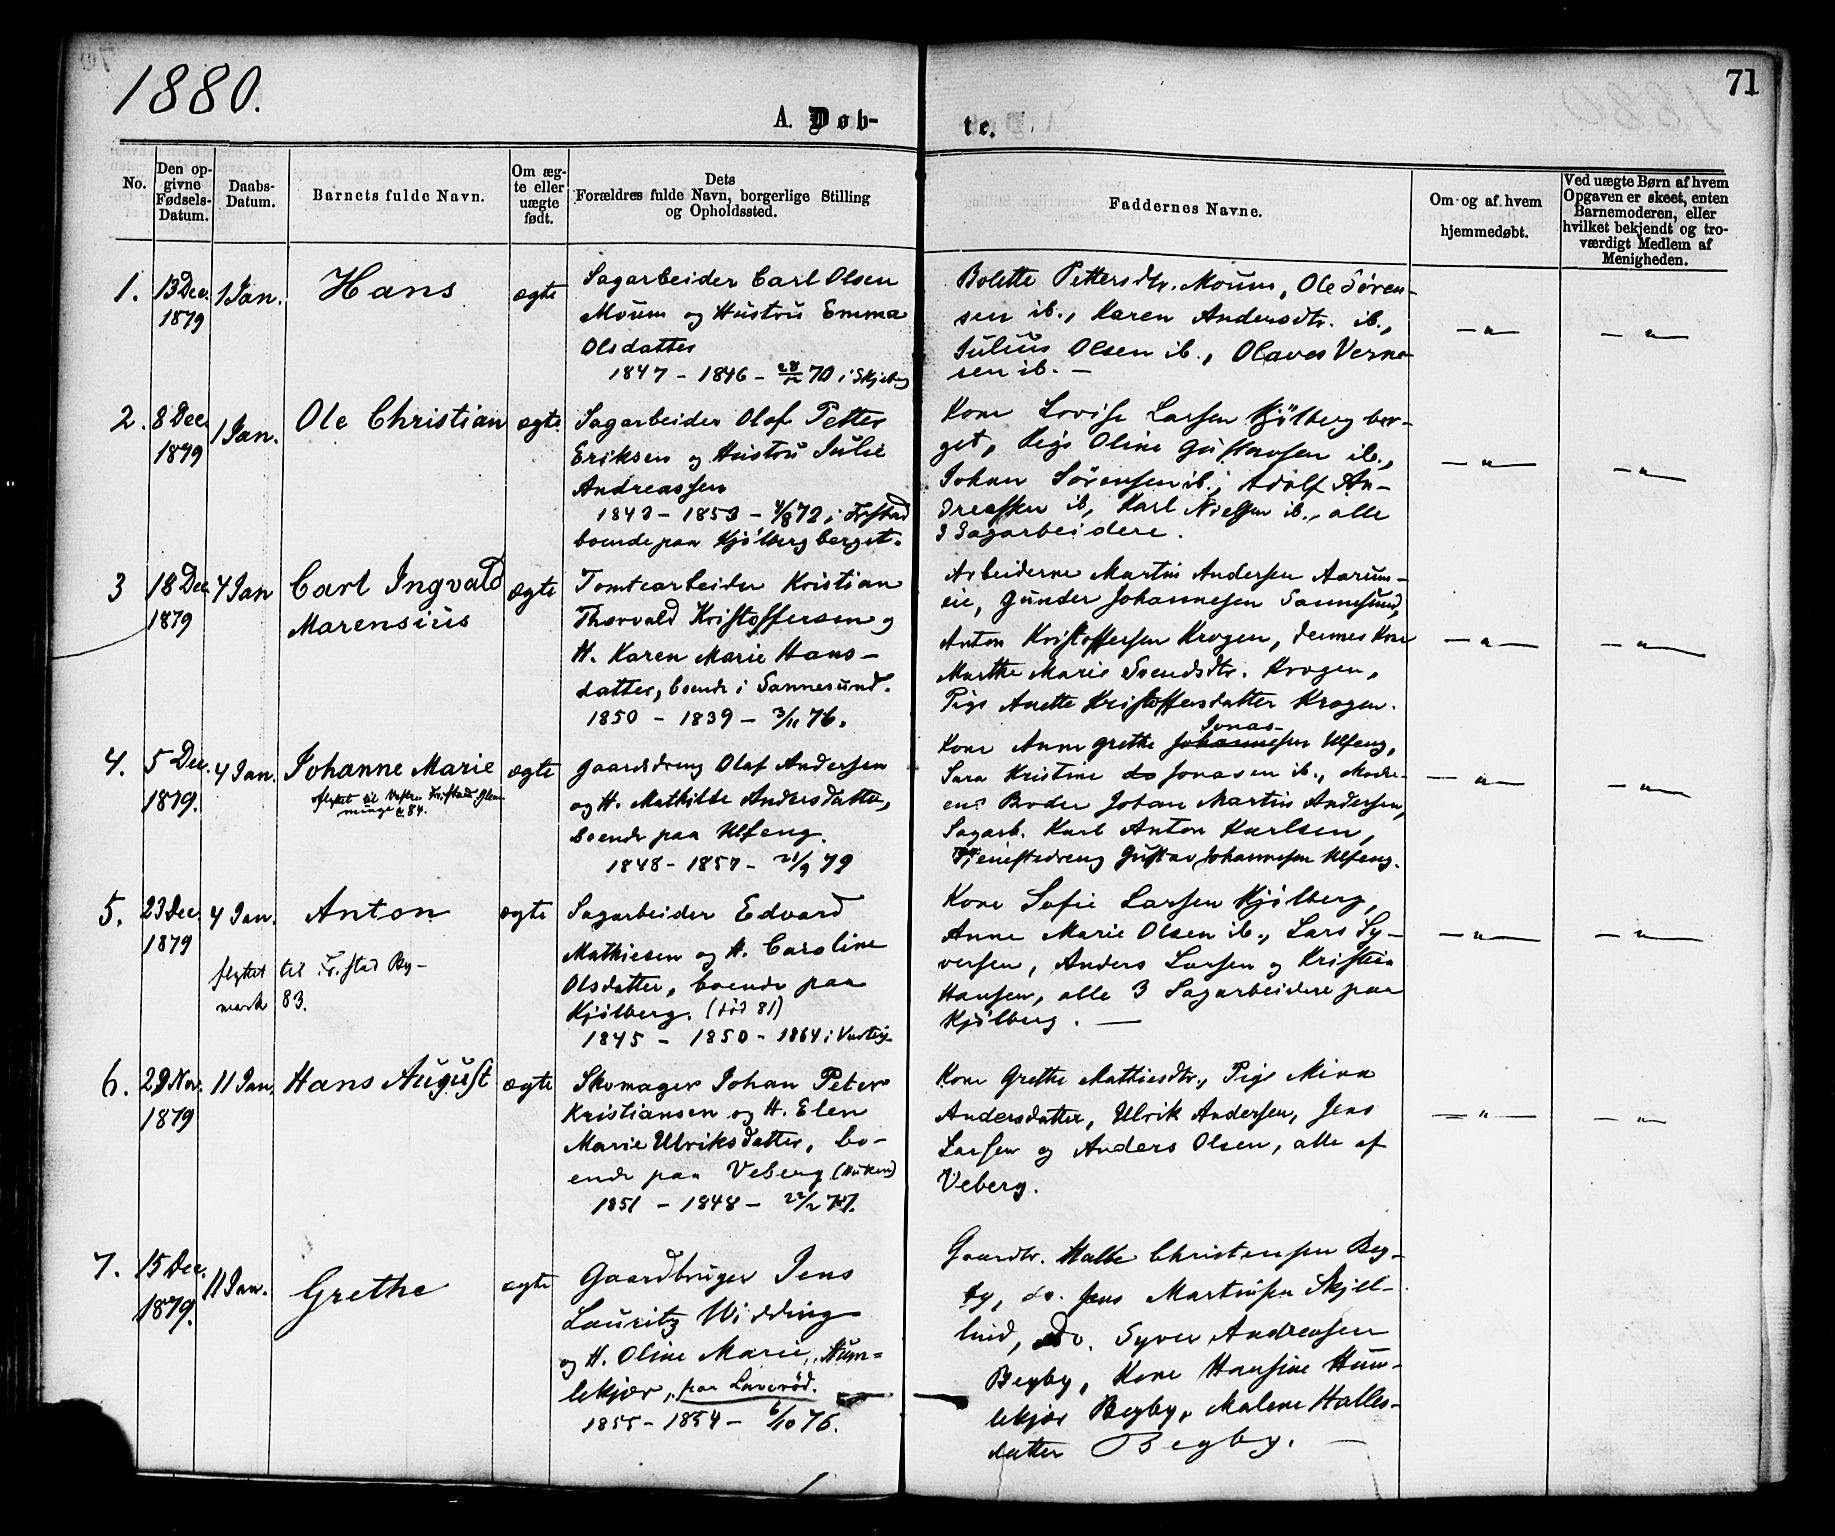 1880.
71
A. Døb-
te.
No.
Den op-
givne
Fødsels-
Datum.
Daabs-
Datum.
Barnets fulde Navn.
Om æg-
te eller
uægte
født.
Dets
Forældres fulde Navn, borgerlige Stilling
og Opholdssted.
Faddernes Navne.
Om og af hvem
hjemmedøbt.
Ved uægte Børn af hvem
Opgaven er skeet, enten
Barnemoderen, eller
hvilket bekjendt og tro-
værdigt Medlem af
Menigheden.
1.
13 Dec.
1879
1 Jan.
Hans
ægte
Sagarbeider Carl Olsen
Moum og Hustru Emma
Olsdatter
1847 - 1846 - 28/12 70 i Skjeberg
Bolette Pettersdtr. Moum, Ole Søren-
sen ib., Karen Andersdtr. ib.,
Julius Olsen ib., Olaves Verne-
sen ib. -
- " -
- " -
2.
8 Dec
1879
1 Jan.
Ole Christian
ægte
Sagarbeider Olaf Petter
Eriksen og Hustru Julie
Andreassen
1843 - 1853 - 4/8 72 i Frstad
boende paa Kjølbergberget.
Kone Lovise Larsen Kjølbergber-
get, Pige Oline Gustavsen ib.,
Johan Sørensen ib., Adolf An-
dreassen ib, Karl Nielsen ib., alle
3 Sagarbeidere.
- " -
- " -
3
18 Dec
1879
4 Jan
Carl Ingvald
Marensius
ægte
Tomtearbeider Kristian
Thorvald Kristoffersen og
H. Karen Marie Hans-
datter, boende i Sannesund.
1850 - 1839 - 3/11 76.
Arbeiderne Martin Andersen Aarum-
eie, Gunder Johannesen Sannesund,
Anton Kristoffersen Krogen, dennes Kone
Marthe Marie Svendsdtr. Krogen,
Pige Anette Kristoffersdatter Krogen.
- " -
- " -
4.
5 Dec.
1879.
4 Jan.
Johanne Marie
flyttet til Vestre Fr.stad Glem-
minge 84.
ægte
Gaardsdreng Olaf Andersen
og H. Mathilde Andersdatter,
boende paa Ulfeng.
1848 - 1857 - 21/9 79
Jonas-
Kone Anne Grethe Johannesen Ulfeng,
Sara Kristine do Jonasen ib., Mode-
ens Broder Johan Martin Andersen,
Sagarb. Karl Anton Karlsen,
Tjenestedreng Gustav Johannesen Ulfeng.
- " -
- " -
5.
23 Dec.
1879
4 Jan.
Anton
flyttet til Fr.stad By-
mark 83.
ægte
Sagarbeider Edvard
Mathiesen og H. Caroline
Olsdatter, boende paa
Kjølberg. (død 81)
1845 - 1850 - 1864 i
Kone Sofie Larsen Kjølberg,
Anne Marie Olsen ib., Lars Sy-
versen, Anders Larsen og Kristian
Hansen, alle 3 Sagarbeidere paa
Kjølberg. -
- " -
- " -
6.
29 Nov.
1879
11 Jan.
Hans August
ægte
Skomager Johan Peter
Kristiansen og H. Elen
Marie Ulriksdatter, bo-
ende paa Veberg
1851 - 1848 - 22/2
Kone Grethe Mathiesdtr., Pige Mina
Andersdatter, Ulrik Andersen, Jens
Larsen og Anders Olsen, alle af
Veberg.
- " -
- " -
7.
15 Dec.
1879.
11 Jan.
Grethe
ægte
Gaardbruger Jens
Lauritz Widding
og H. Oline Marie, Hum-
lekjær, paa Laverød.
1855 - 1854 - 6/10 76.
Gaardbr. Halle Christensen Beg-
by, do. Jens Martinsen Skjel-
lind, do. Syver Andreasen
Begby, Kone Hansine Hum-
lekjær Begby, Malene Halles-
datter Begby. -